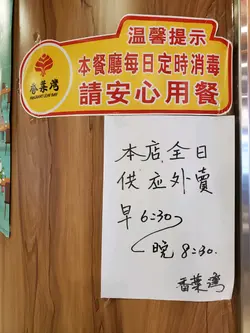 溫馨提示
香葉灣
本餐廳每日定時消毒
請安心用餐
本店全日
供应外賣
早 6:30
晚 8:30.
香葉灣